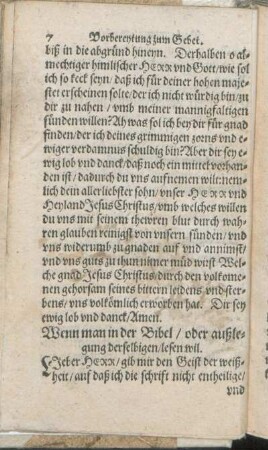 7 Vorbereytung zum Gebet.
biß in die abgründ hineyn. Derhalben o all-
mechtiger himlischer HERR vnd Gott/ wie sol
ich so keck seyn/ daß ich für deiner hohen maje-
stet erscheinen solte/ der ich nicht würdig bin/ zu
dir zu nahen / vmb meiner mannigfaltigen
sünden willen? Ah was sol ich bey dir für gnad
finden/ der ich deines grimmigen zorns vnd e-
wiger verdamnus schuldig bin? Aber dir sey e-
wig lob vnd danck/ daß noch ein mittel vorhan-
den ist / dadurch du vns aufnemen wilt: nem-
lich dein allerliebster sohn/ vnser HERR vnd
Heyland Jesus Christus/ vmb welches willen
du vns mit seinem thewren blut durch wah-
ren glauben reinigst von vnsern sünden/ vnd
vns widerumb zu gnaden auf vnd annimst/
vnd vns guts zu thun nimer müd wirst Wel-
che gnad Jesus Christus/ durch den volkome-
nen gehorsam seines bittern leidens vnd ster-
bens/ vns volkömlich erworben hat. Dir sey
ewig lob vnd danck/ Amen.
Wenn man in der Bibel / oder außle-
gung derselbigen/ lesen wil.
LIeber HERR/ gib mir den Geist der weiß-
heit/ auf daß ich die schrift nicht entheilige/
vnd